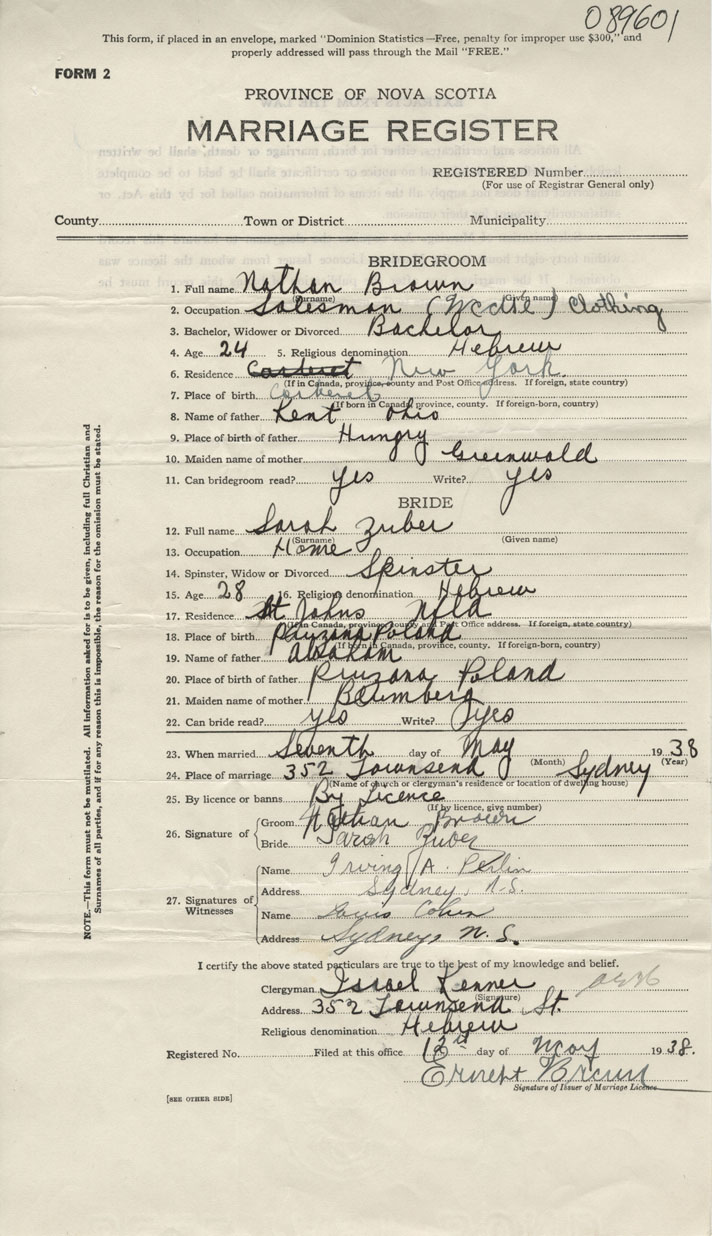 089601
This form, if placed in an envelope, marked "Dominion Statistics—Free, penalty for improper use $300," and
properly addressed will pass through the Mail "FREE."
FORM 2
PROVINCE OF NOVA SCOTIA
MARRIAGE REGISTER
REGISTERED Number
(For use of Registrar General only)
County Town or District Municipality
BRIDEGROOM
1. Full name Nathan Brown
(Surname) (Given name)
2. Occupation Salesman Clothing
3. Bachelor, Widower or Divorced Bachelor
4. Age 24 5. Religious denomination Hebrew
6. Residence New York.
(If in Canada, province, county and Post Office address. If foreign, state country)
7. Place of birth
(If born in Canada, province, county. If foreign-born, country)
8. Name of father Kent Ohio
9. Place of birth of father Hungry
10. Maiden name of mother Greenwald
11. Can bridegroom read? yes Write? yes
BRIDE
12. Full name Sarah Zuber
(Surname) (Given name)
13. Occupation Home
14. Spinster, Widow or Divorced Spinster
15. Age 28 16. Religious denomination Hebrew
17. Residence St Johns Nfld
(If in Canada, province, county and Post Office address. If foreign, state country)
18. Place of birth Poland
(If born in Canada, province, county. If foreign-born, country)
19. Name of father Abraham
20. Place of birth of father Poland
21. Maiden name of mother
22. Can bride read? yes Write? yes
23. When married Seventh day of May 1938
(Month) (Year)
24. Place of marriage 352 Townsend Sydney
(Name of church or clergyman's residence or location of dwelling house)
25. By licence or banns By Licence
(If by licence, give number)
26. Signature of
Groom Nathan Brown
Bride Sarah Zuber
27. Signatures of Witnesses
Name Irving A. Perlin
Address Sydney, N.S.
Name Louis Cohen
Address Sydney, N.S.
I certify the above stated particulars are true to the best of my knowledge and belief.
Clergyman Israel Kenner
(Signature)
Address 352 Townsend St.
Religious denomination Hebrew
Registered No. Filed at this office day of May 1938.
Ernest Brown
Signature of Issuer of Marriage Licence
[SEE OTHER SIDE]
NOTE.—This form must not be mutilated. All information asked for is to be given, including full Christian and
Surnames of all parties, and if for any reason this is impossible, the reason for the omission must be stated.